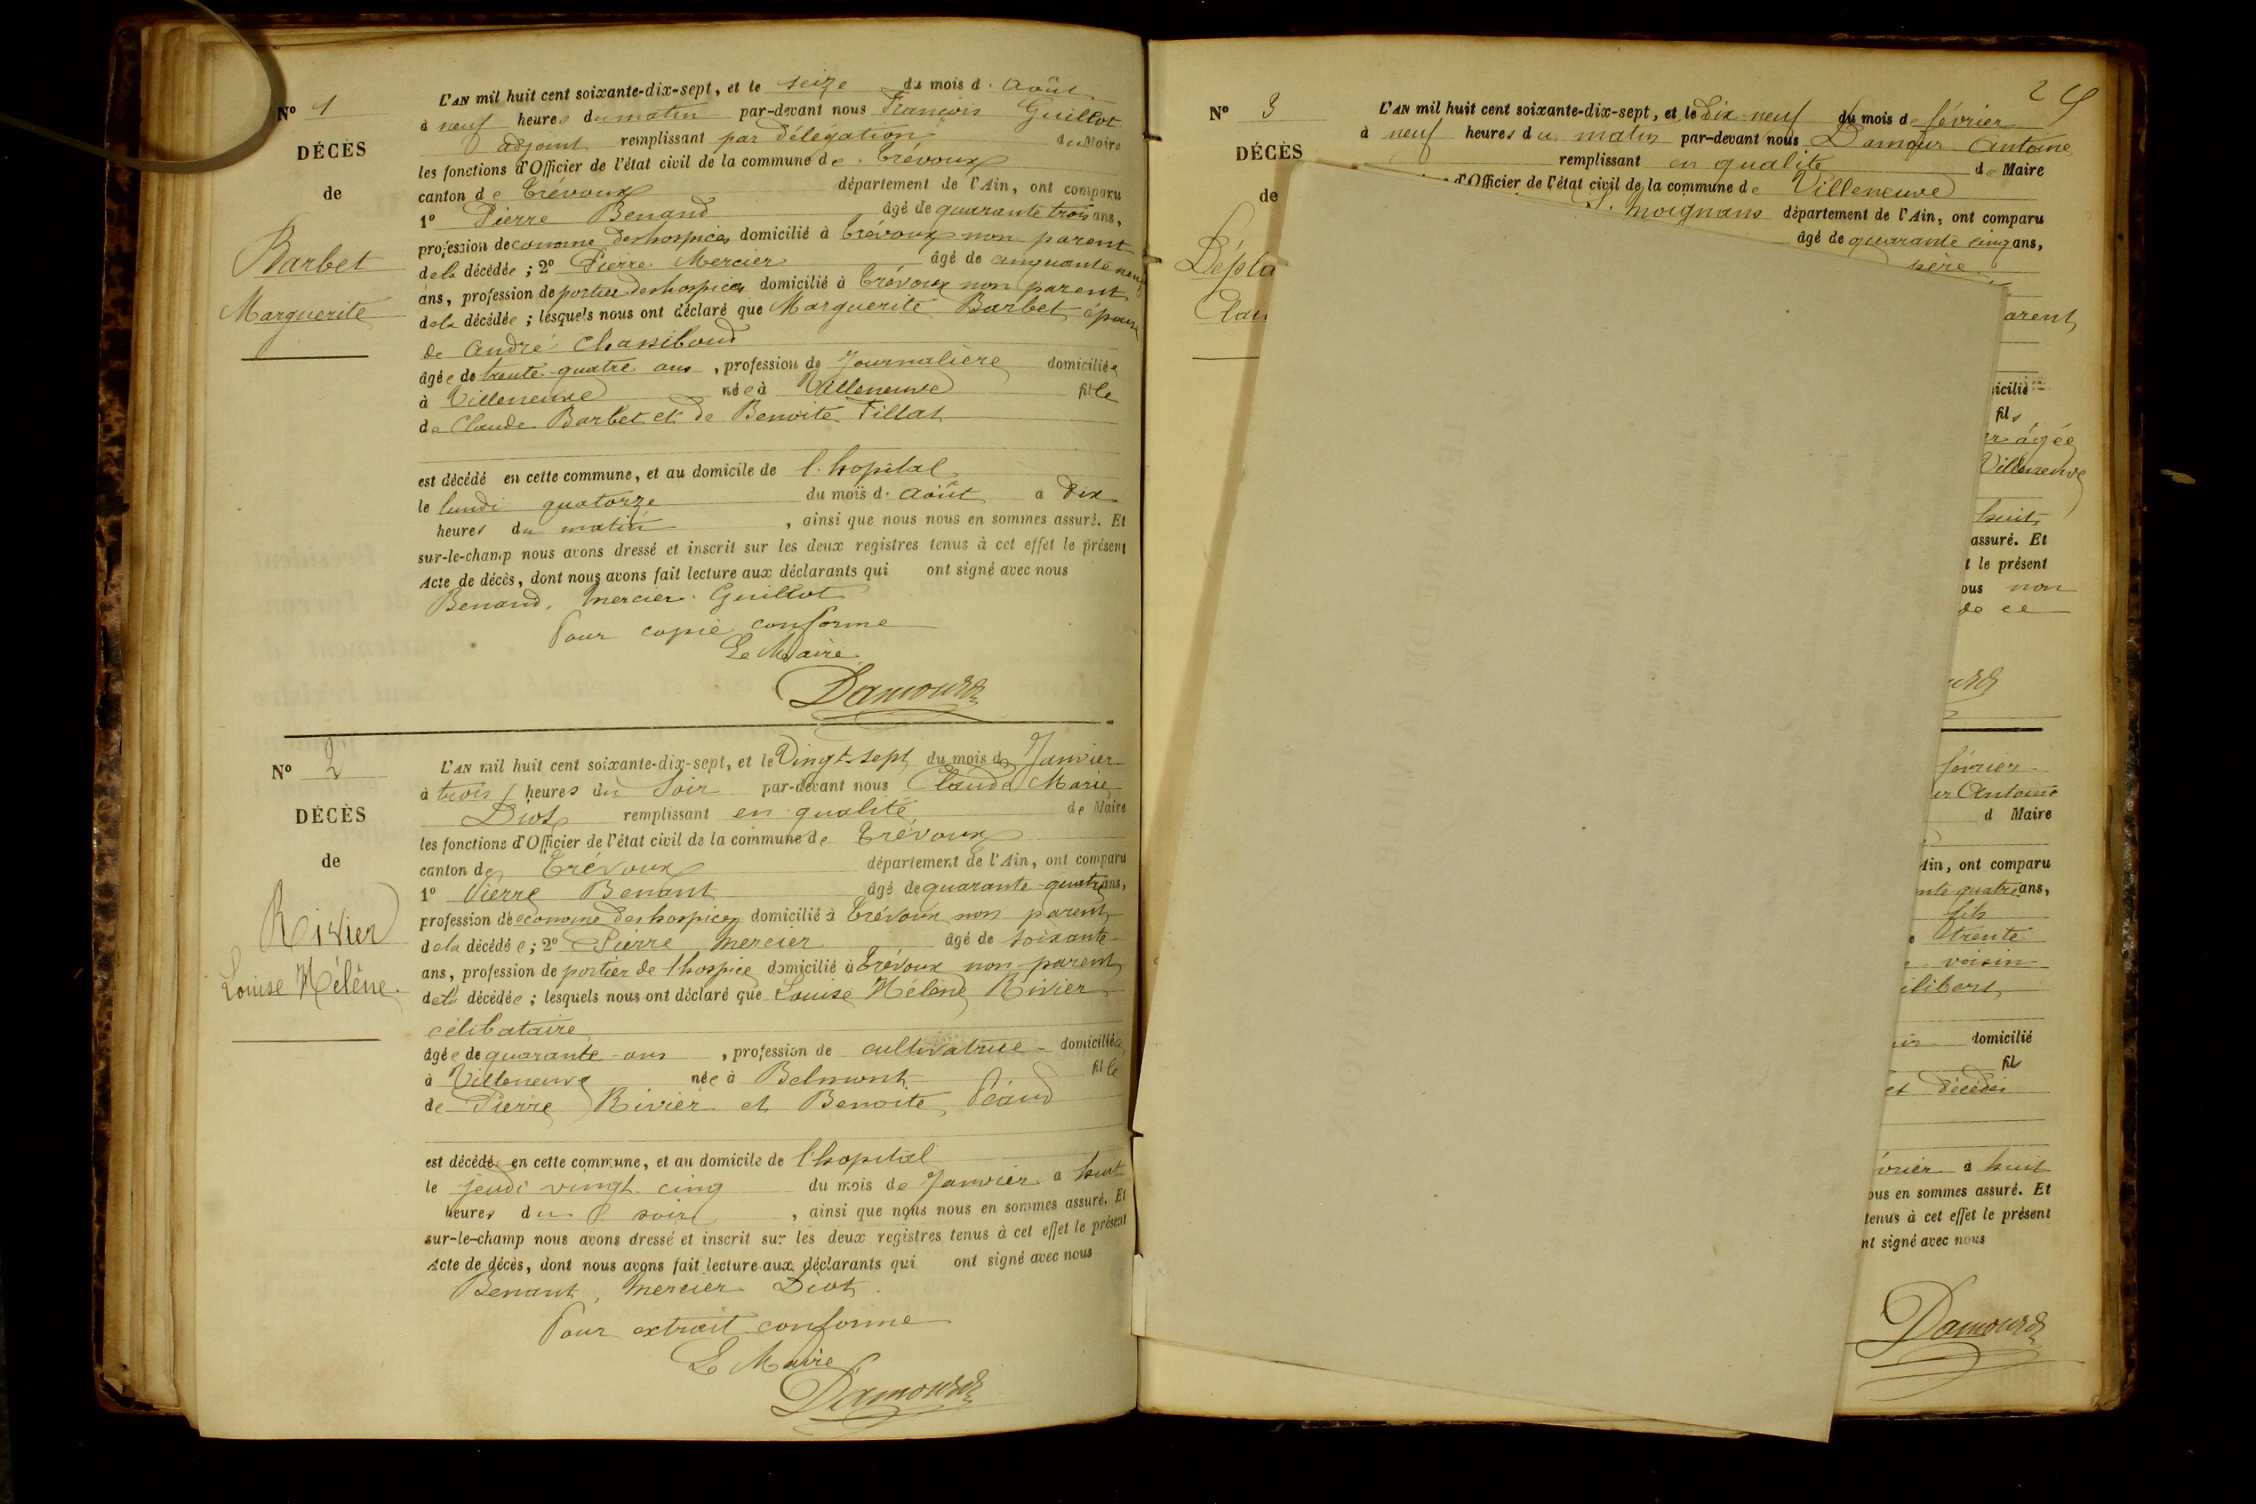 Nº 1
DÉCÈS
de
Barbet
Marguerite
L'AN mil huit cent soixante-dix-sept, et le seize du mois d. Août
à neuf heures du matin par-devant nous François Guillot
adjoint remplissant par délégation du Maire
les fonctions d'Officier de l'état civil de la commune de Trévoux
canton de Trévoux département de l'Ain, ont comparu
1º Pierre Benand âgé de quarante trois ans,
profession de econome des hospices domicilié à Trévoux non parent
de la décédée ; 2º Pierre Mercier âgé de cinquante neuf
ans, profession de portier des hospices domicilié à Trévoux non parent
de la décédée ; lesquels nous ont déclaré que Marguerite Barbet épouse
de André Chassiboud
âgée de trente-quatre ans, profession de Journalière domiciliée
à Villeneuve née à Villeneuve fille
de Claude Barbet et de Benoite Fillat
est décédé en cette commune, et au domicile de l'hopital
le lundi quatorze du mois d. Août a dix
heures du matin, ainsi que nous nous en sommes assuré. Et
sur-le-champ nous avons dressé et inscrit sur les deux registres tenus à cet effet le présent
Acte de décès, dont nous avons fait lecture aux déclarants qui ont signé avec nous
Benand, Mercier. Guillot
Pour copie conforme
Le Maire
Damour
Nº 2
DÉCÈS
de
Rivier
Louise Hélène.
L'AN mil huit cent soixante-dix-sept, et le Vingt-sept du mois de Janvier
à trois heures du Soir par-devant nous Claude Marie
Diot remplissant en qualité de Maire
les fonctions d'Officier de l'état civil de la commune de Trévoux
canton de Trévoux département de l'Ain, ont comparu
1º Pierre Benant âgé de quarante-quatre ans,
profession de econome des hospices domicilié à Trévoux non parent
de la décédée ; 2º Pierre Mercier âgé de soixante
ans, profession de portier de l'hospice domicilié à Trévoux non parent
de la décédée ; lesquels nous ont déclaré que Louise Hélène Rivier
célibataire
âgée de quarante-ans, profession de cultivatrice domiciliée
à Villeneuve née à Belmont fille
de Pierre Rivier et Benoite Péaud
est décédé en cette commune, et au domicile de l'hopital
le jeudi vingt-cinq du mois de Janvier a huit
heures du soir, ainsi que nous nous en sommes assuré. Et
sur-le-champ nous avons dressé et inscrit sur les deux registres tenus à cet effet le présent
Acte de décès, dont nous avons fait lecture aux déclarants qui ont signé avec nous
Benant, Mercier Diot.
Pour extrait conforme
Le Maire
Damour
2
Nº 3
DÉCÈS
de
Dépla
Clau
L'AN mil huit cent soixante-dix-sept, et le Dix neuf du mois de février
à neuf heures du matin par-devant nous Damour Antoine
remplissant en qualité de Maire
d'Officier de l'état civil de la commune de Villeneuve
moignans département de l'Ain, ont comparu
âgé de quarante cinq ans,
père
arent
icilié
fils
er âgée
Villeneuve
huit
assuré. Et
t le présent
ous non
de ce
février
er Antoine
d Maire
Ain, ont comparu
nte quatre ans,
fils
trente
voisin
ilibert
domicilié
fil
et décédés
vrier a huit
ous en sommes assuré. Et
tenus à cet effet le présent
nt signé avec nous
Damour